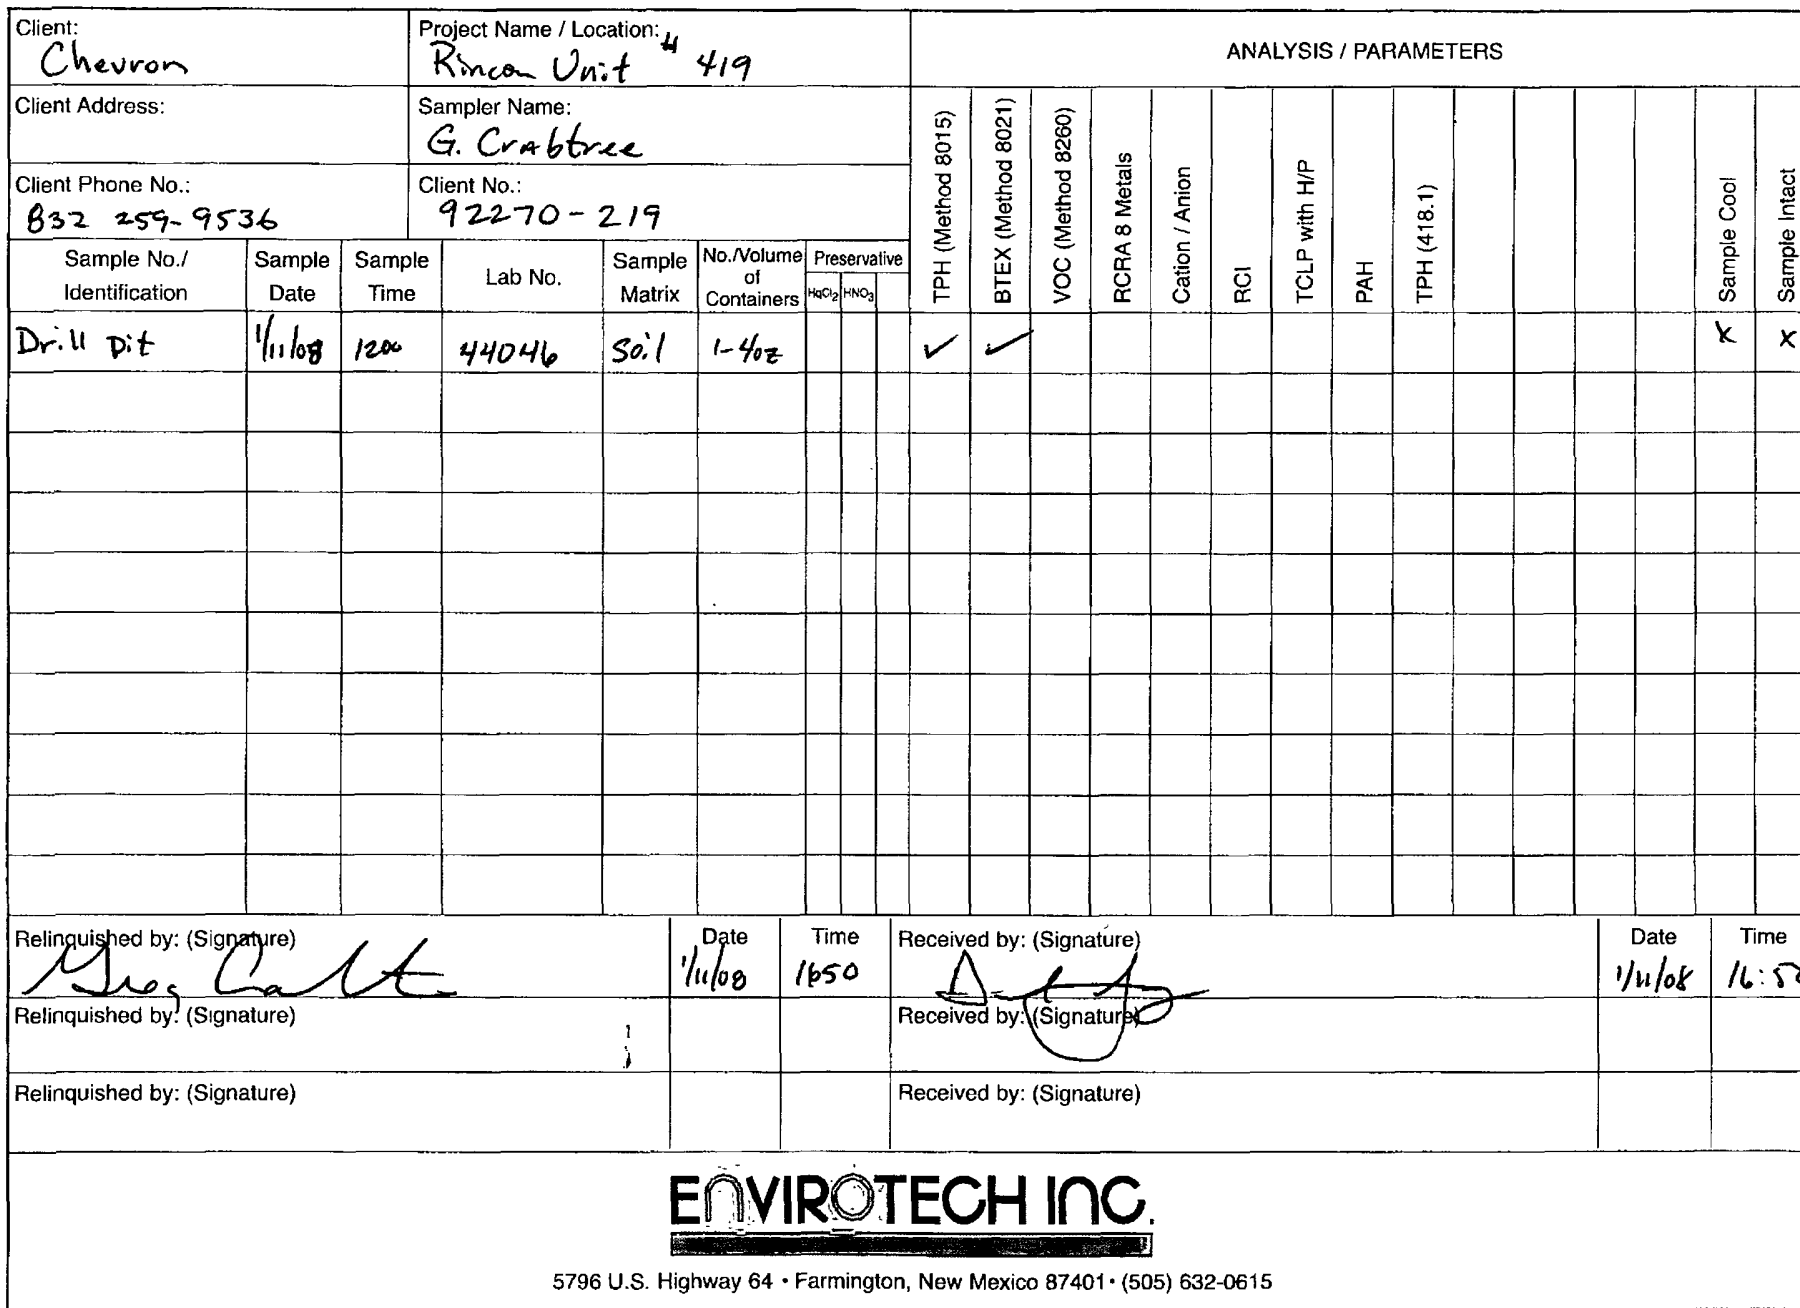 Client:
Chevron
Project Name / Location:
Rincon Unit # 419
ANALYSIS / PARAMETERS
Client Address:
Sampler Name:
G. Crabtree
Client Phone No.:
832 259-9536
Client No.:
92270-219
Sample No./ Identification
Sample Date
Sample Time
Lab No.
Sample Matrix
No./Volume of Containers
Preservative
HgCl2
HNO3
TPH (Method 8015)
BTEX (Method 8021)
VOC (Method 8260)
RCRA 8 Metals
Cation / Anion
RCI
TCLP with H/P
PAH
TPH (418.1)
Sample Cool
Sample Intact
Drill Pit 1/11/08 1200 44046 Soil 1-4oz ✓ ✓ x x
Relinquished by: (Signature)
Greg
Date
1/11/08
Time
1650
Received by: (Signature)
Date
1/11/08
Time
16:50
Relinquished by: (Signature)
Received by: (Signature)
Relinquished by: (Signature)
Received by: (Signature)
ENVIROTECH INC.
5796 U.S. Highway 64 • Farmington, New Mexico 87401 • (505) 632-0615